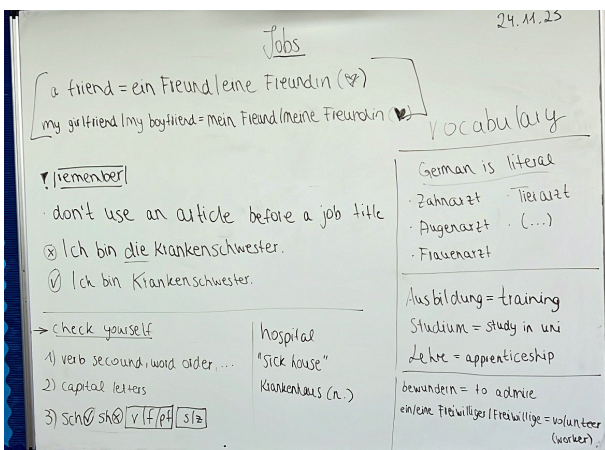 24.11.25
Jobs
a friend = ein Freund/eine Freundin (♡)
my girlfriend/my boyfriend = mein Freund/meine Freundin (♥)
! remember!
· don't use an article before a job title
ⓧ Ich bin die Krankenschwester.
✓ Ich bin Krankenschwester.
→ check yourself
1) verb secound, word order, ...
2) capital letters
3) sch ✓ sh ⓧ v/f/pf s/z
hospital
"sick house"
Krankenhaus (n.)
Vocabulary
German is literal
· Zahnarzt · Tierarzt
· Augenarzt · (...)
· Frauenarzt
Ausbildung = training
Studium = study in uni
Lehre = apprenticeship
bewundern = to admire
ein/eine Freiwilliger/Freiwillige = volunteer
(worker)